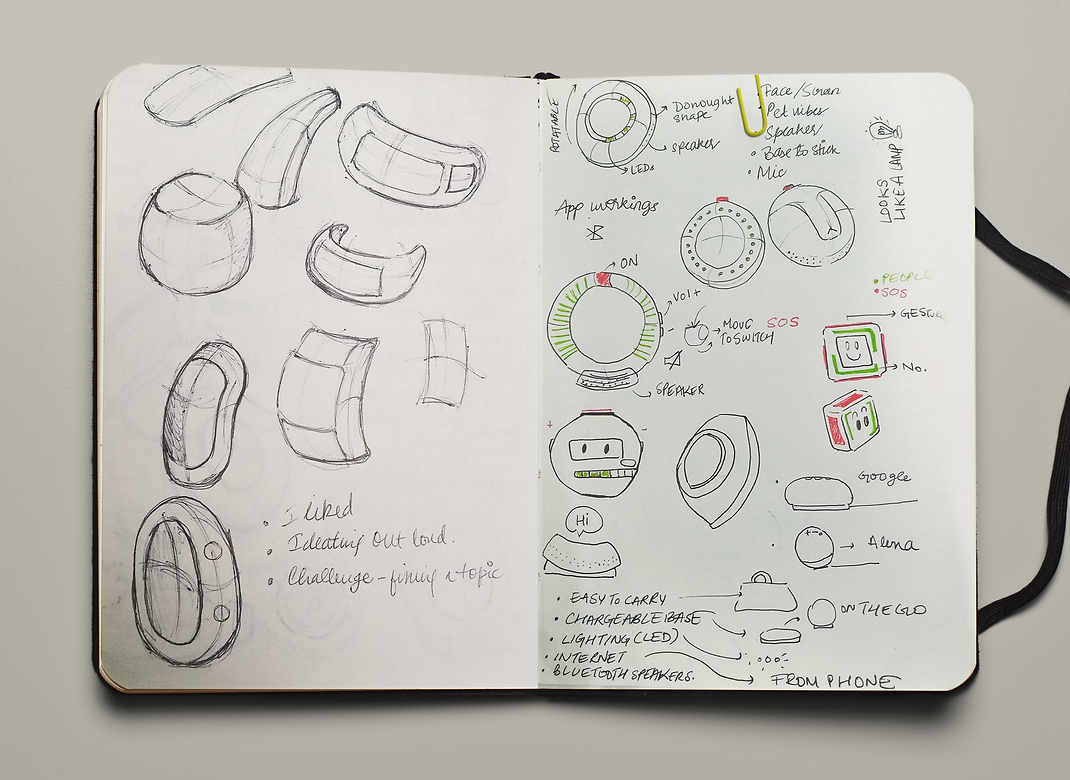 • I liked
• Ideating out loud.
• Challenge - fining a topic
ROTATABLE
Donought
shape
speaker
LEDs
Face/Screen
• Pet vibes
Speaker
• Base to stick
• Mic
LOOKS
LIKE A LAMP
App workings
ON
Vol+
MOVE
TO SWITCH
SOS
SPEAKER
• PEOPLE
• SOS
GESTUR
No.
+
-
Hi
Google
Alexa
• EASY TO CARRY
• CHARGEABLE BASE
• LIGHTING (LED)
• INTERNET
• BLUETOOTH SPEAKERS.
ON THE GO
FROM PHONE